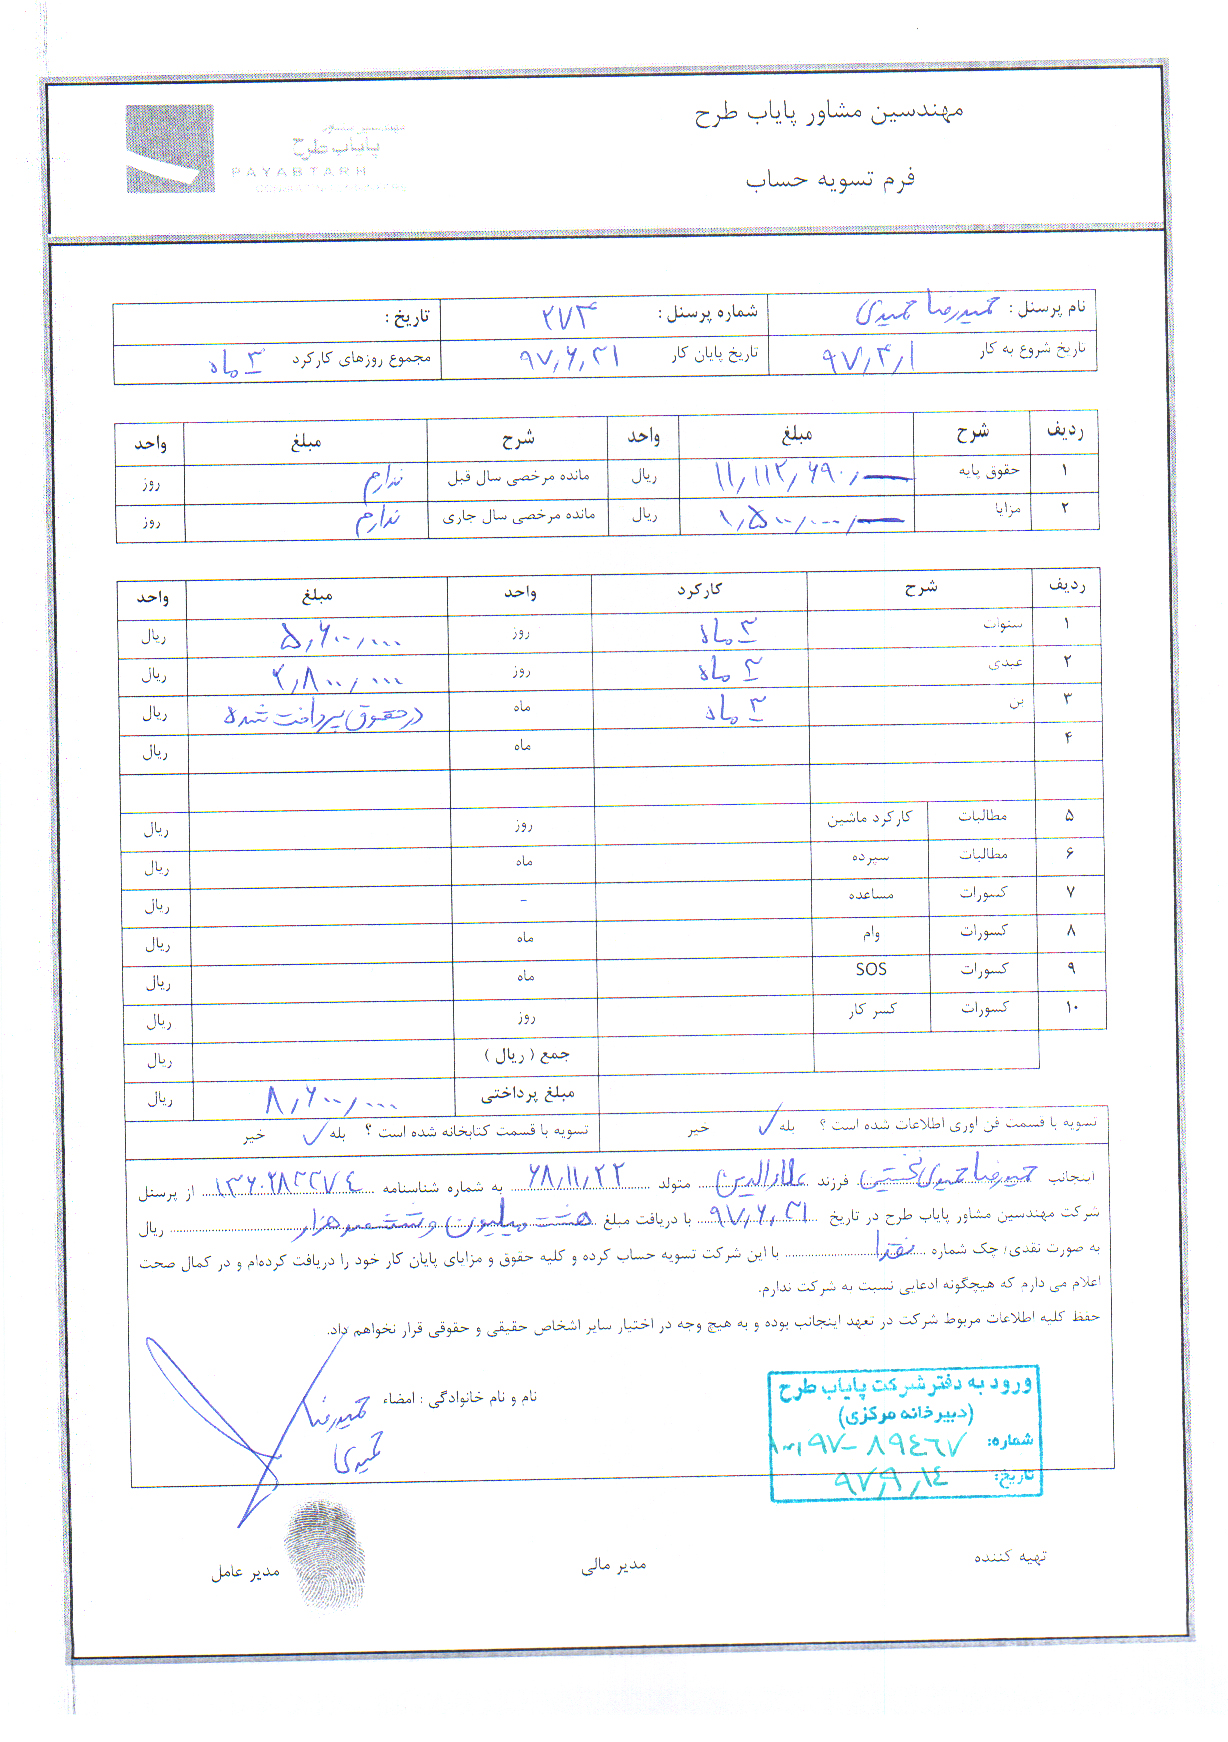 مهندسین مشاور پایاب طرح
فرم تسویه حساب
مهندسین مشاور
پایاب طرح
PAYABTARH
نام پرسنل : حمیدرضا حمیدی شماره پرسنل : ۲۷۴ تاریخ :
تاریخ شروع به کار ۹۷٫۴٫۱ تاریخ پایان کار ۹۷٫۶٫۳۱ مجموع روزهای کارکرد ۳ ماه
ردیف شرح مبلغ واحد شرح مبلغ واحد
۱ حقوق پایه ۱۱٫۱۱۲٫۶۹۰٫ ریال مانده مرخصی سال قبل ندارم روز
۲ مزایا ۱٫۵۰۰٫۰۰۰٫ ریال مانده مرخصی سال جاری ندارم روز
ردیف شرح کارکرد واحد مبلغ واحد
۱ سنوات ۳ ماه روز ۵٫۶۰۰٫۰۰۰ ریال
۲ عیدی ۳ ماه روز ۲٫۸۰۰٫۰۰۰ ریال
۳ بن ۳ ماه ماه در حقوق پرداخت شده ریال
۴ ماه ریال
۵ مطالبات کارکرد ماشین روز ریال
۶ مطالبات سپرده ماه ریال
۷ کسورات مساعده - ریال
۸ کسورات وام ماه ریال
۹ کسورات SOS ماه ریال
۱۰ کسورات کسر کار روز ریال
جمع ( ریال ) ریال
مبلغ پرداختی ۸٫۶۰۰٫۰۰۰ ریال
تسویه با قسمت فن آوری اطلاعات شده است ؟ بله ✓ خیر تسویه با قسمت کتابخانه شده است ؟ بله ✓ خیر
اینجانب حمیدرضا حمیدی فرزند متولد ۶۸٫۱۱٫۲۲ به شماره شناسنامه از پرسنل
شرکت مهندسین مشاور پایاب طرح در تاریخ ۹۷٫۶٫۳۱ با دریافت مبلغ هشت میلیون و ششصد هزار ریال
به صورت نقدی/ چک شماره نقدا با این شرکت تسویه حساب کرده و کلیه حقوق و مزایای پایان کار خود را دریافت کرده‌ام و در کمال صحت
اعلام می دارم که هیچگونه ادعایی نسبت به شرکت ندارم.
حفظ کلیه اطلاعات مربوط شرکت در تعهد اینجانب بوده و به هیچ وجه در اختیار سایر اشخاص حقیقی و حقوقی قرار نخواهم داد.
نام و نام خانوادگی : امضاء حمیدرضا
حمیدی
ورود به دفتر شرکت پایاب طرح
(دبیرخانه مرکزی)
شماره: ۹۷-۸۹٤٦۷
تاریخ: ۹۷٫۹٫۱٤
تهیه کننده مدیر مالی مدیر عامل